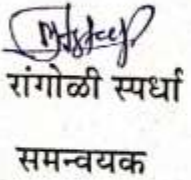 रांगोळी स्पर्धा
समन्वयक